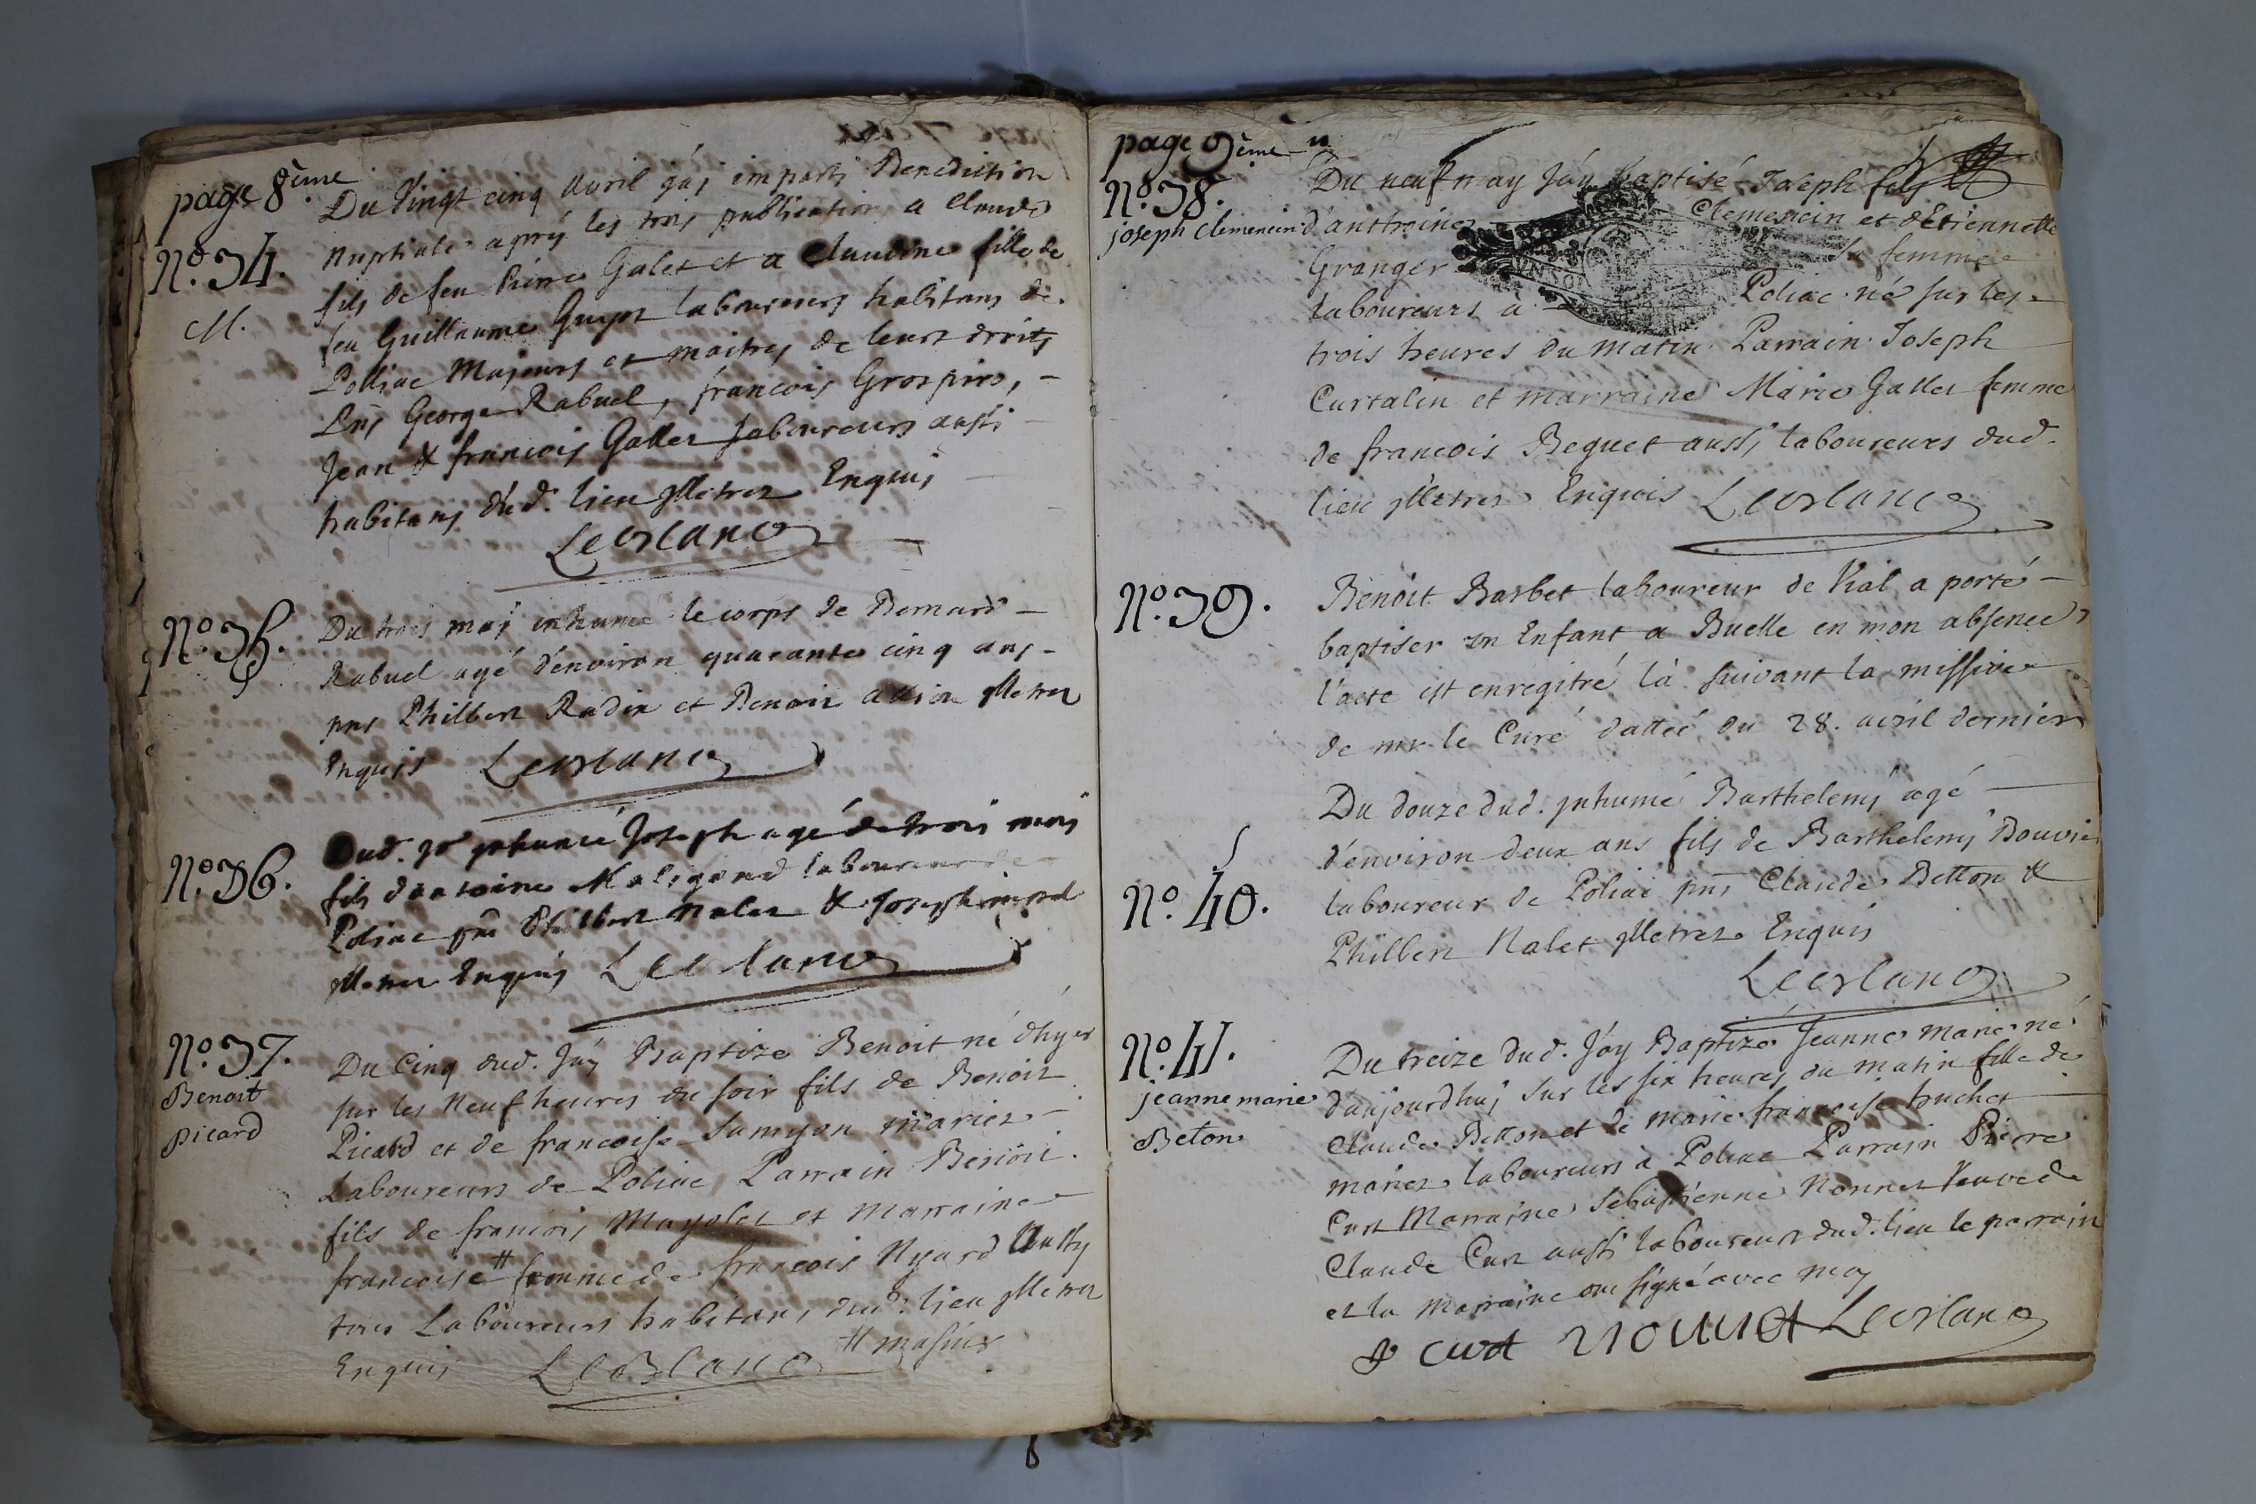 page 8ème
Nº. 34.
M.
Du Vingt cinq avril j'ay imparti Benediction
nuptiale apres les trois publication a Claude
fils de feu Pierre Galet et a Claudine fille de
feu Guillaume Guyot laboureurs habitans de
Polliac Majeurs et maitres de leurs droits
Pns George Rabuel, francois Grospiro, -
Jean & francois Gallet laboureurs aussi
habitans dud. lieu illetrez Enquis
LeBlanc
Nº. 35.
Du trois maj inhumé le corps de Bernard -
Rabuel agé d'environ quarante cinq ans -
pns Philbert Radix et Benoit illetrez
Enquis LeBlanc
Nº. 36.
Dud. jr inhumé Joseph agé de trois mois
fils d'antoine Maligand laboureur de
Poliac pns Philibert Nalet & Joseph
illetrez Enquis LeBlanc
Nº. 37.
Benoit
picard
Du Cinq dud. J'ay Baptize Benoit né d'hyer
sur les Neuf heures du soir fils de Benoit
Picard et de francoise Sumyon mariez -
Laboureurs de Poliac Parrain Benoit
fils de francois Mayolet et Marraine
francoise # femme de francois Nyard
tous Laboureurs habitans dud. lieu illetrez
Enquis LeBlanc # masuir
page 9ème
Nº. 38.
joseph clemencin
Du neuf may J'ay baptisé Joseph fils
d'anthoine Clemencin et d'Etiennette
Granger sa femme
laboureurs à Poliac né sur les
trois heures du matin. Parrain Joseph
Curtalin et marraine Marie Gallet femme
de francois Beguet aussi laboureurs dud.
lieu illetrez Enquis LeBlanc
Nº. 39.
Benoit Barbet laboureur de Vial a porté -
baptiser un Enfant a Buelle en mon absence
l'acte est enregitré là suivant la missive
de mr. le Curé dattée du 28. avril dernier
Nº. 40.
Du douze dud. inhumé Barthelemy agé -
d'environ deux ans fils de Barthelemy Bouvier
laboureur de Poliac pns Claude Betton &
Philbert Nalet illetrez Enquis
LeBlanc
Nº. 41.
jeanne marie
Beton
Du treize dud. J'ay Baptizé Jeanne Marie né
d'aujourdhuj sur les six heures du matin fille de
Claude Betton et de Marie francoise touchet
mariez laboureurs a Poliac Parrain Pierre
Curt Marraine Sebastienne Nonnet Veuve de
Claude Curt aussi laboureur dud. lieu le parrain
et la marraine ont signé avec moy
P curt nonnet LeBlanc